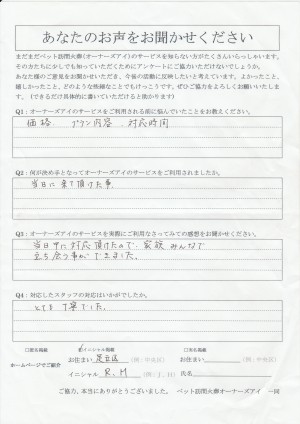 あなたのお声をお聞かせください
まだまだペット訪問火葬(オーナーズアイ)のサービスを知らない方がたくさんいらっしゃいます。
その方たちに少しでも知っていただくためにアンケートにご協力いただけないでしょうか。
あなた様のご意見をお聞かせいただき、今後の活動に反映したいと考えています。よかったこと、
嬉しかったこと、どのような些細なことでもけっこうです。ぜひご協力をよろしくお願いいたしま
す。(できるだけ具体的に書いていただけると助かります)
Q1:オーナーズアイのサービスをご利用される前に悩んでいたことをお教えください。
価格 プラン内容、対応時間
Q2:何が決め手となってオーナーズアイのサービスをご利用されましたか。
当日に来て頂けた事。
Q3:オーナーズアイのサービスを実際にご利用なさってみての感想をお聞かせください。
当日中に対応頂けたので、家族みんなで
立ち会う事ができました。
Q4:対応したスタッフの対応はいかがでしたか。
とても丁寧でした。
□匿名掲載 イニシャル掲載 □実名掲載
ホームページでご紹介 お住まい 足立区 (例:中央区) お住まい (例:中央区)
イニシャル R.M (例:J.H) 氏名
ご協力、本当にありがとうございました。 ペット訪問火葬オーナーズアイ 一同